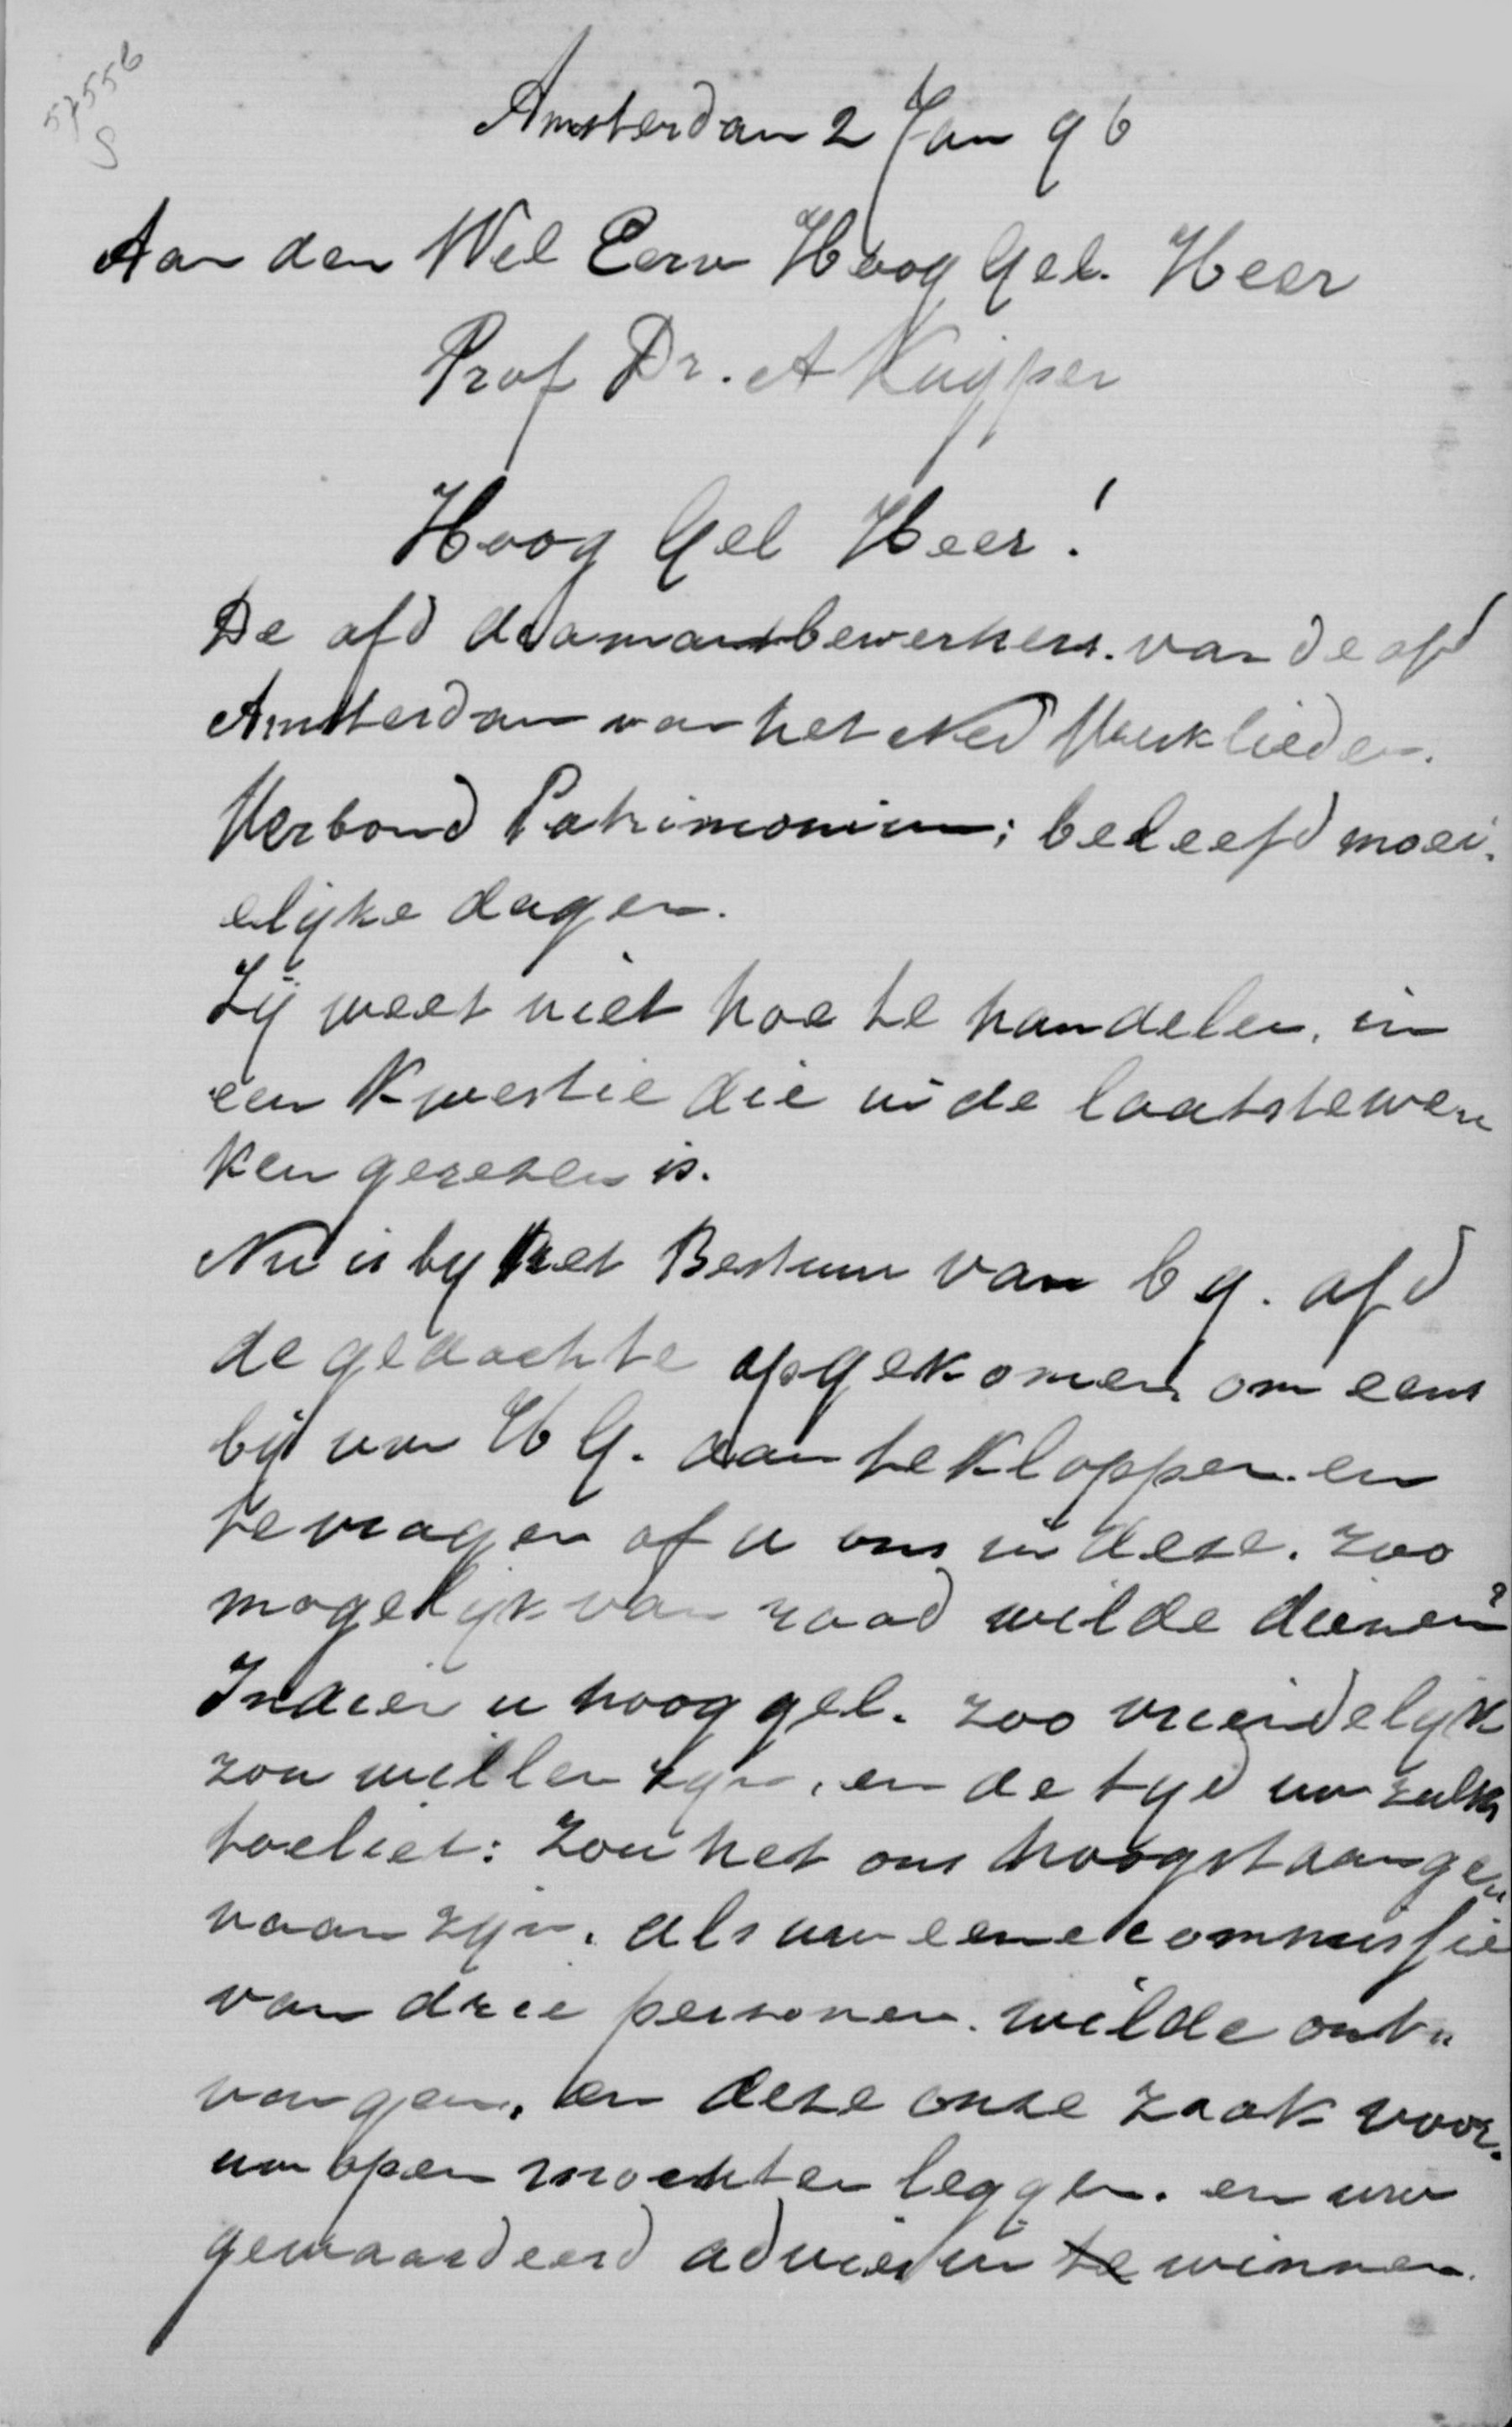 57556
S
Amsterdam 2 Jan 96
Aan den Wel Eerw Hoog Gel. Heer
Prof Dr. A Kuijper
Hoog Gel Heer!
De afd diamantbewerkers. van de afd
Amsterdam van het Ned Werklieden.
Verbond Patrimonium; beleefd moei.
elijke dagen.
Zij weet niet hoe te handelen, in
een Kwestie die in de laatste wee"
ken gerezen is.
Nu is by het Bestuur van bg. afd
de gedachte opgekomen om eens
bij uw HG. aan te Kloppen en
te vragen of u ons in deze. zoo
mogelijk van raad wilde dienen?
Indien u hoog gel. zoo vriendelijk
zou willen zyn, en de tyd uw zulks
toeliet: zou het ons hoogst aange"
naam zijn. als uw eene commissie
van drie personen. wilde ont"
vangen. en deze onze zaak voor.
uw open mochten leggen. en uw
gewaardeerd advies in te winnen.